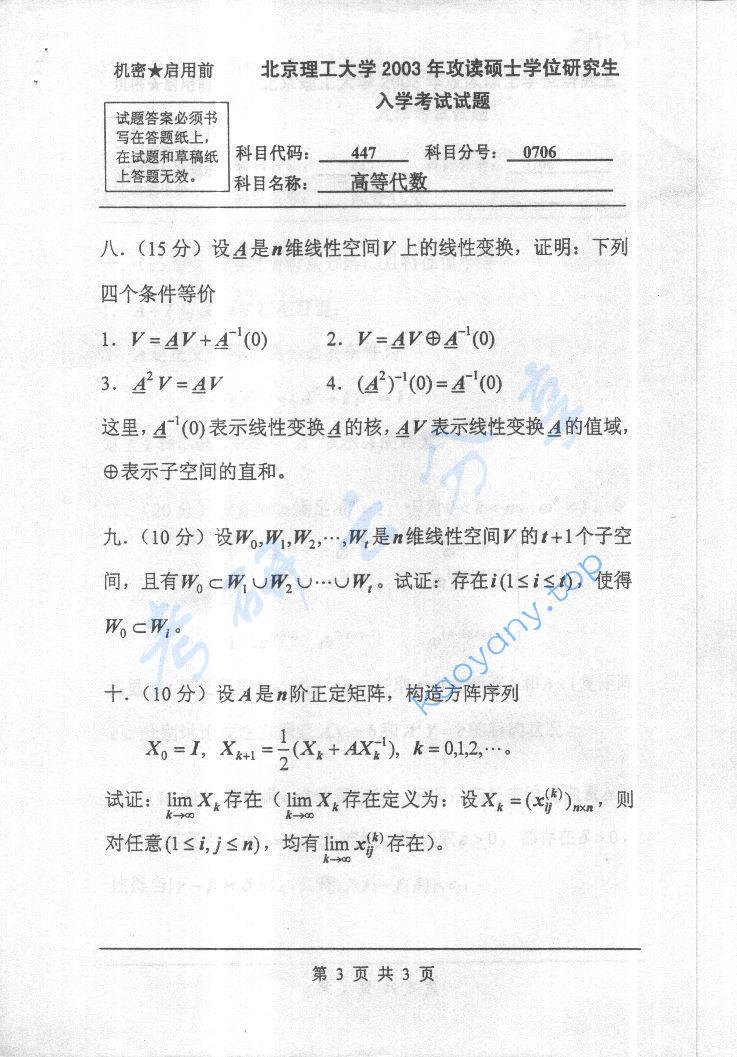 机密★启用前
北京理工大学 2003 年攻读硕士学位研究生
入学考试试题
试题答案必须书
写在答题纸上,
在试题和草稿纸
上答题无效。
科目代码: 447 科目分号: 0706
科目名称: 高等代数
八.(15 分)设 A 是 n 维线性空间 V 上的线性变换,证明:下列
四个条件等价
1. V = AV + A⁻¹(0) 2. V = AV ⊕ A⁻¹(0)
3. A²V = AV 4. (A²)⁻¹(0) = A⁻¹(0)
这里,A⁻¹(0) 表示线性变换 A 的核,AV 表示线性变换 A 的值域,
⊕表示子空间的直和。
九.(10 分)设 W₀,W₁,W₂,⋯,Wₜ 是 n 维线性空间 V 的 t+1 个子空
间,且有 W₀ ⊂ W₁ ∪ W₂ ∪ ⋯ ∪ Wₜ。试证:存在 i (1 ≤ i ≤ t),使得
W₀ ⊂ Wᵢ。
十.(10 分)设 A 是 n 阶正定矩阵,构造方阵序列
X₀ = I, Xₖ₊₁ = 1/2 (Xₖ + AXₖ⁻¹), k = 0,1,2,⋯。
试证:lim k→∞ Xₖ 存在(lim k→∞ Xₖ 存在定义为:设 Xₖ = (xᵢⱼ⁽ᵏ⁾)ₙₓₙ,则
对任意 (1 ≤ i, j ≤ n),均有 lim k→∞ xᵢⱼ⁽ᵏ⁾ 存在)。
第 3 页 共 3 页
考研云分享
kaoyany.top